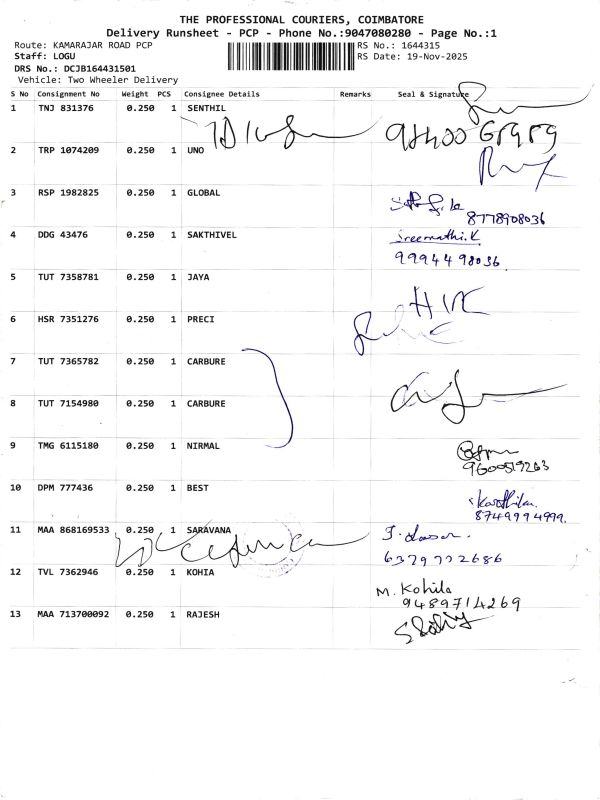 THE PROFESSIONAL COURIERS, COIMBATORE
Delivery Runsheet - PCP - Phone No.:9047080280 - Page No.:1
Route: KAMARAJAR ROAD PCP
RS No.: 1644315
Staff: LOGU
RS Date: 19-Nov-2025
DRS No.: DCJB164431501
Vehicle: Two Wheeler Delivery
S No Consignment No Weight PCS Consignee Details Remarks Seal & Signature
1 TNJ 831376 0.250 1 SENTHIL
2 TRP 1074209 0.250 1 UNO
3 RSP 1982825 0.250 1 GLOBAL
8778908036
4 DDG 43476 0.250 1 SAKTHIVEL Sreemathi.K
9994498036
5 TUT 7358781 0.250 1 JAYA
6 HSR 7351276 0.250 1 PRECI
7 TUT 7365782 0.250 1 CARBURE
8 TUT 7154980 0.250 1 CARBURE
9 TMG 6115180 0.250 1 NIRMAL
9600519263
10 DPM 777436 0.250 1 BEST
8749994999.
11 MAA 868169533 0.250 1 SARAVANA
6379772686
12 TVL 7362946 0.250 1 KOHIA M. Kohila
9489714269
13 MAA 713700092 0.250 1 RAJESH